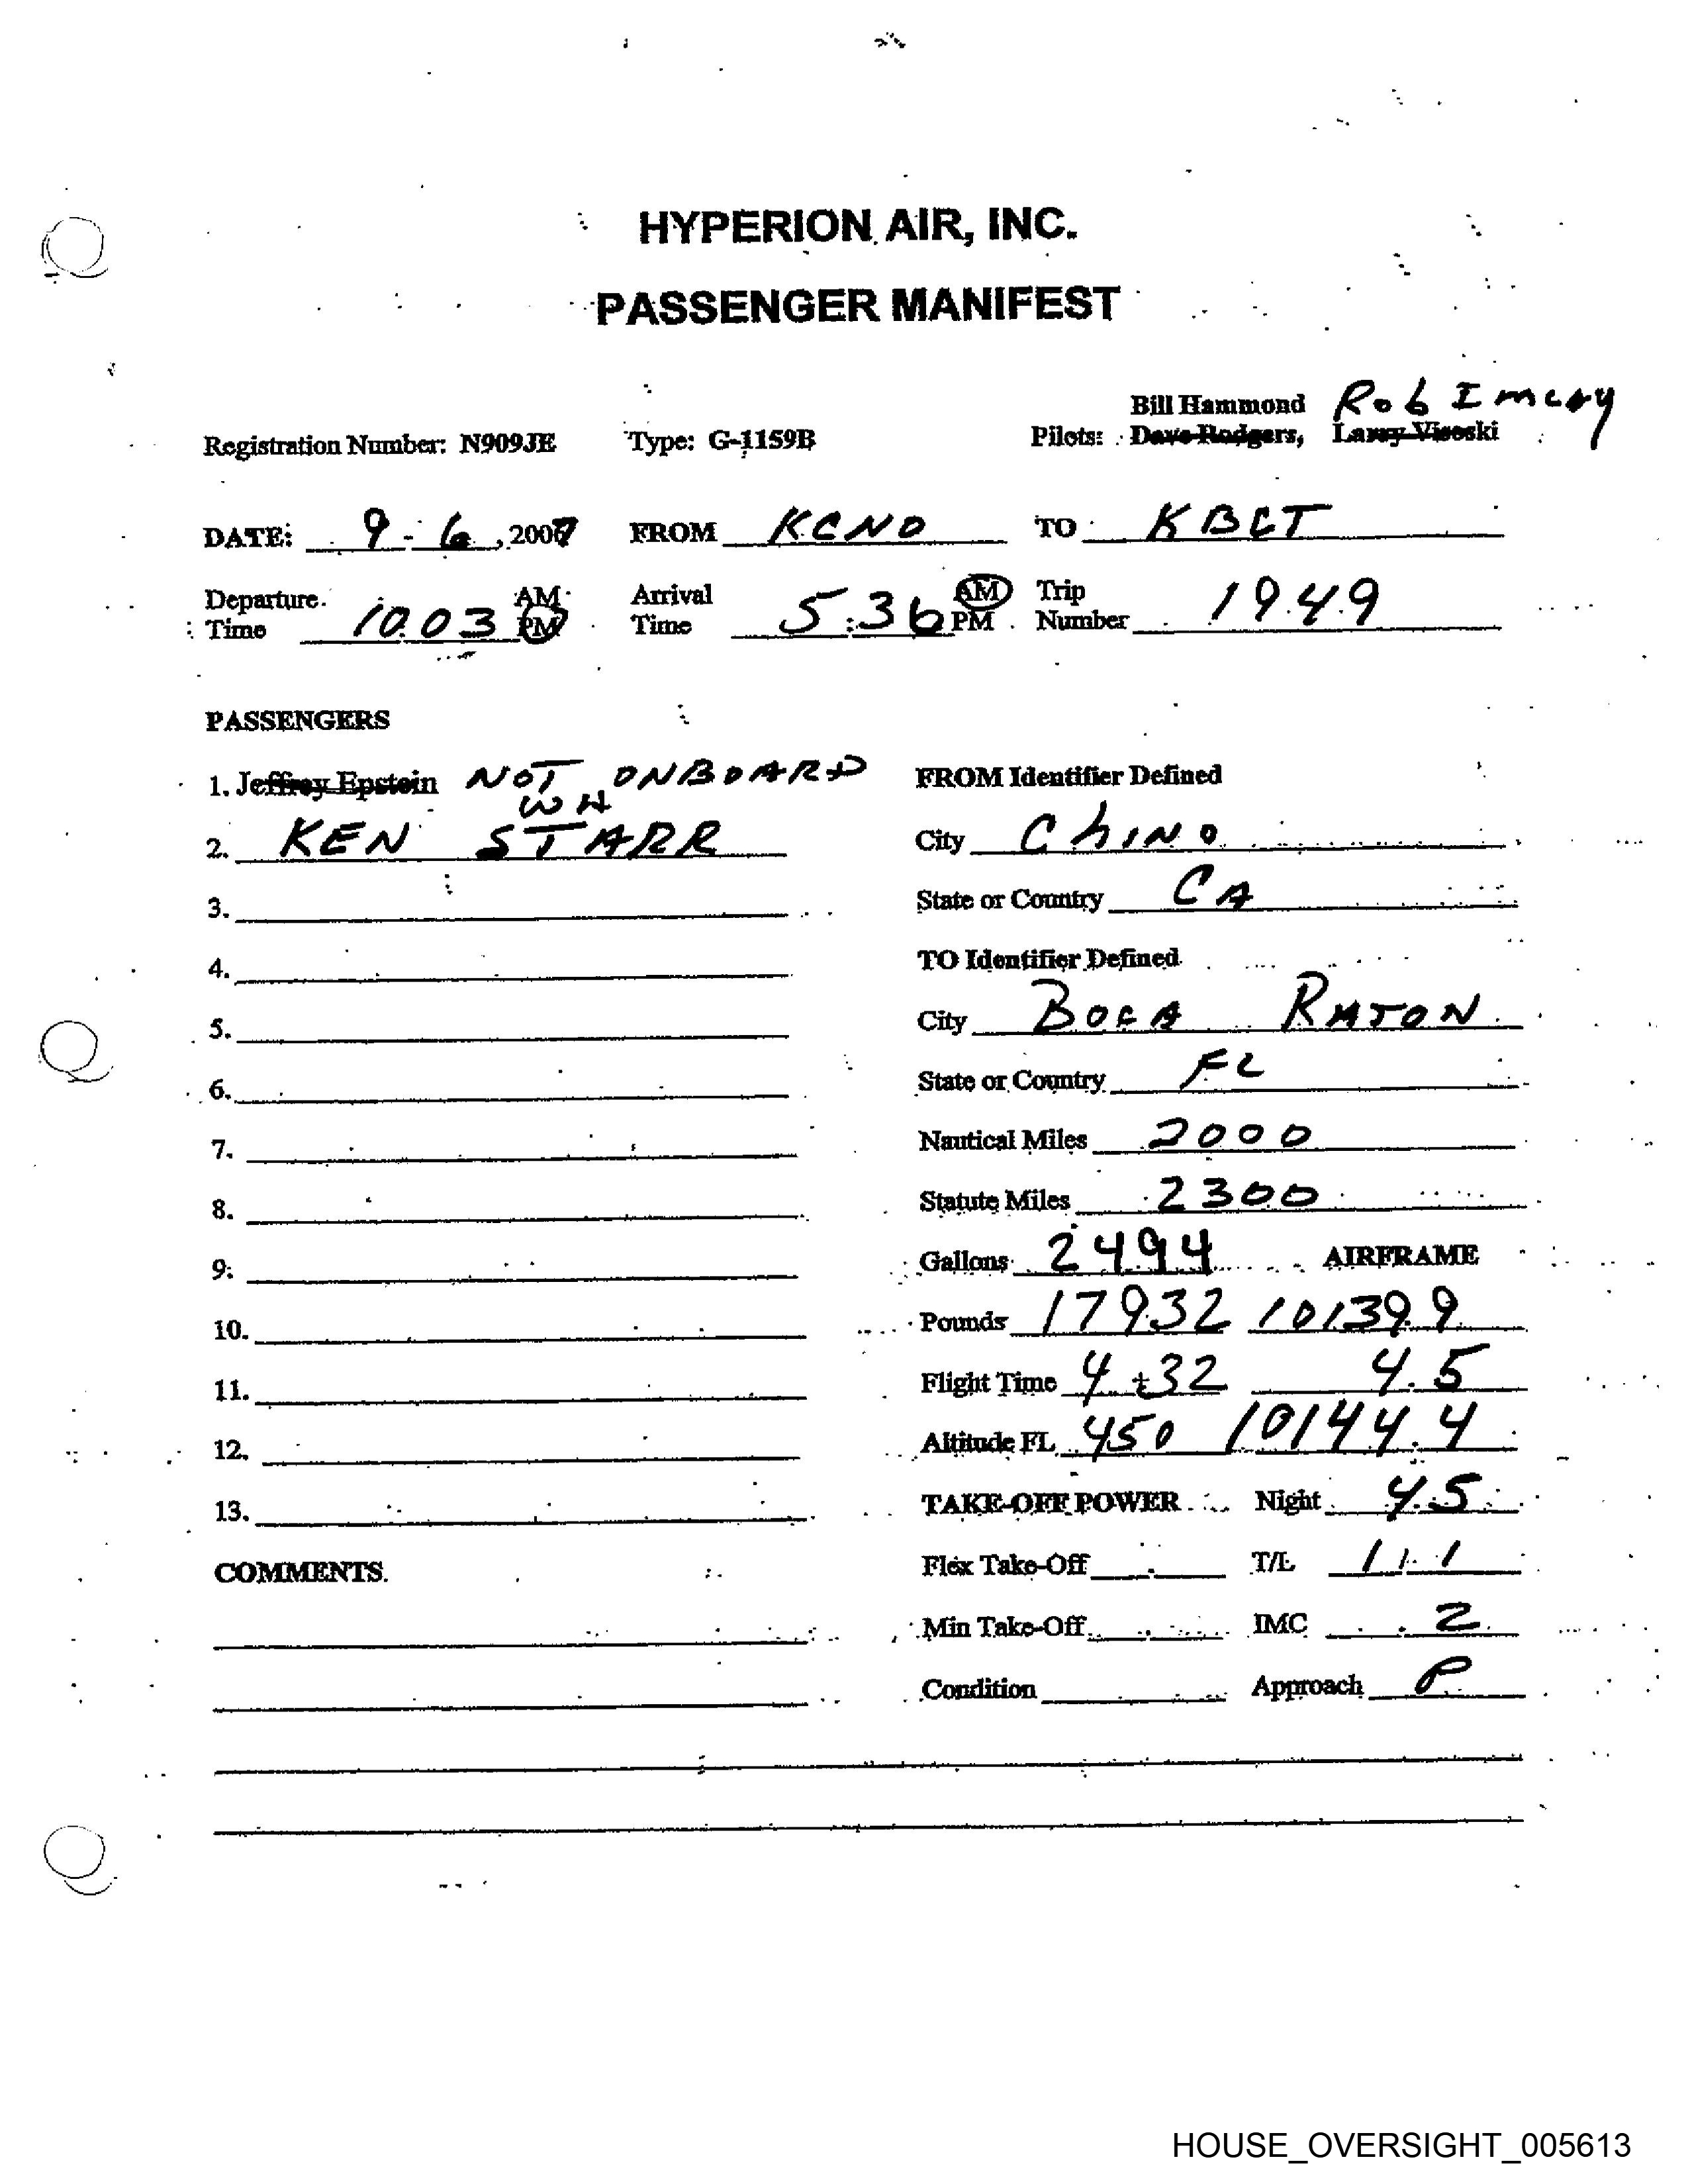 HYPERION AIR, INC.
PASSENGER MANIFEST
Bill Hammond Rob Imcay
Registration Number: N909JE Type: G-1159B Pilots: Dave Rodgers, Larry Visoski
DATE: 9-6, 2007 FROM KCNO TO KBCT
Departure Time 10:03 AM PM Arrival Time 5:36 AM PM Trip Number 1949
PASSENGERS
1. Jeffrey Epstein NOT ONBOARD
WH
2. KEN STARR
3.
4.
5.
6.
7.
8.
9.
10.
11.
12.
13.
COMMENTS
FROM Identifier Defined
City ChINO
State or Country CA
TO Identifier Defined
City BOCA RATON
State or Country FL
Nautical Miles 2000
Statute Miles 2300
Gallons 2494 AIRFRAME
Pounds 17932 10139.9
Flight Time 4+32 4.5
Altitude FL 450 10144.4
TAKE-OFF POWER Night 4.5
Flex Take-Off T/L 1/1
Min Take-Off IMC .2
Condition Approach P
HOUSE_OVERSIGHT_005613